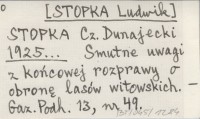 [STOPKA Ludwik]
STOPKA Cz. Dunajecki
1925... Smutne uwagi
z końcowej rozprawy o
obronę lasów witowskich. -
Gaz. Podh. 13, nr. 49.